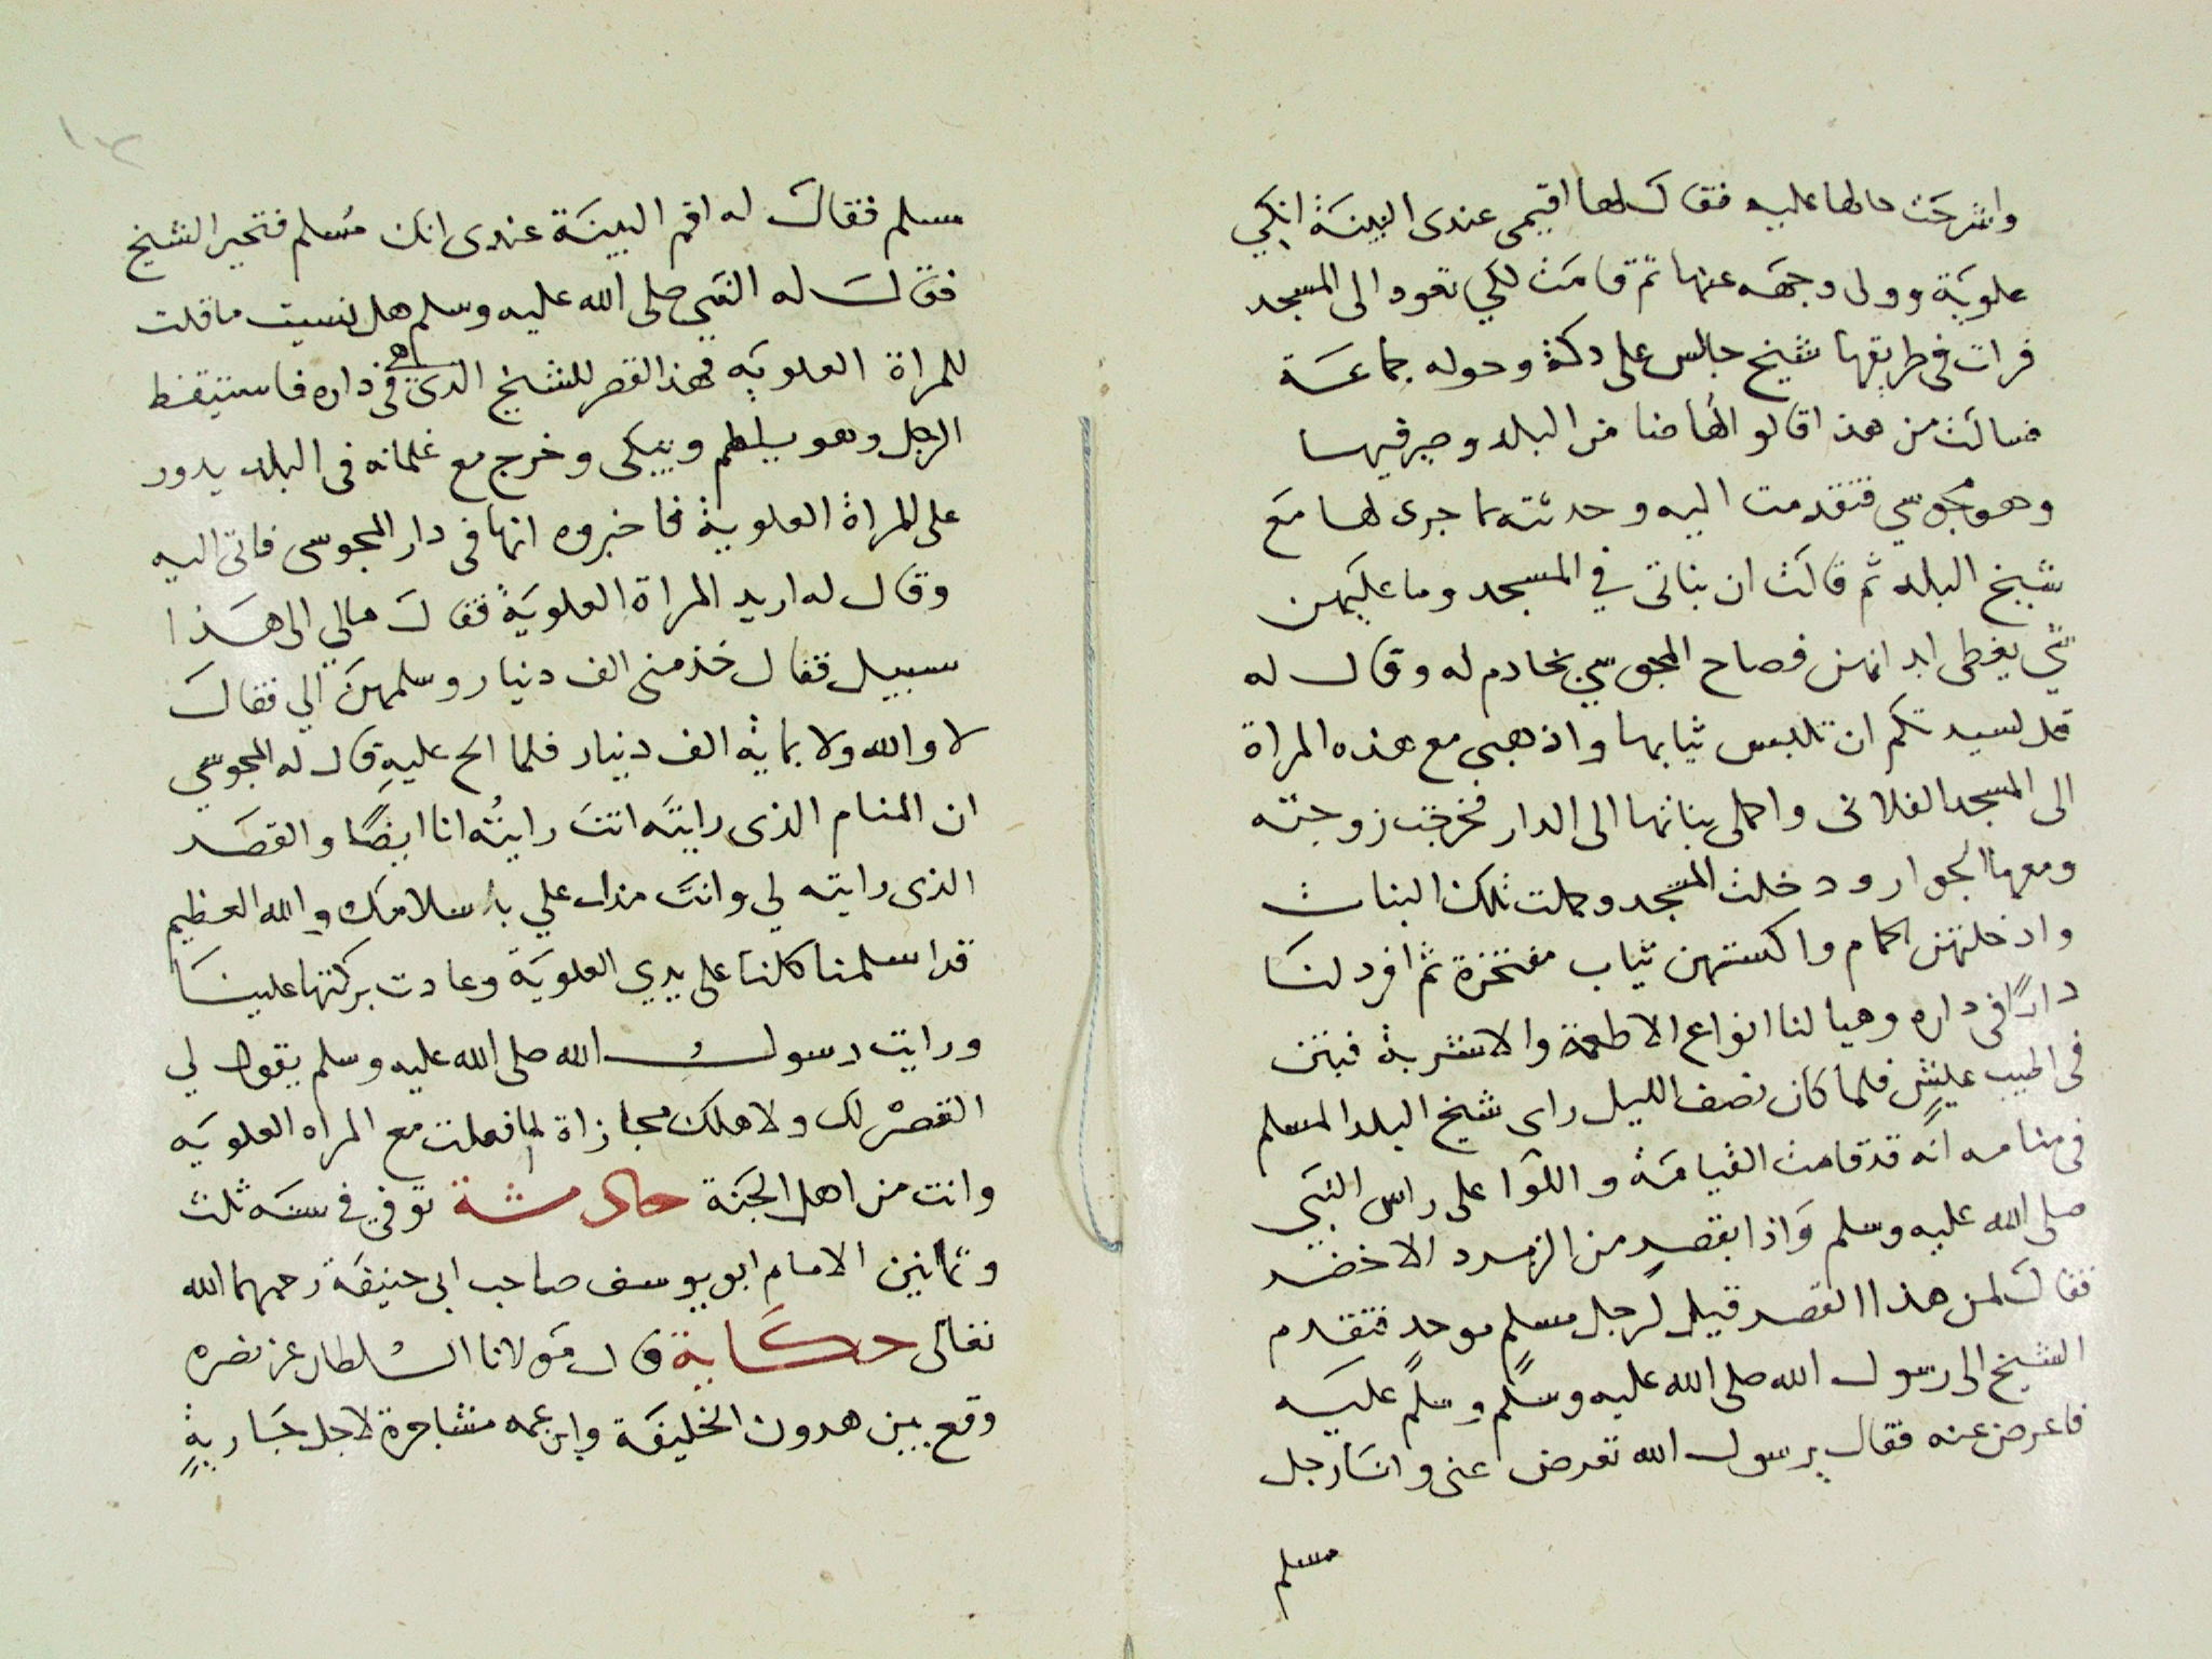 واشرحت حالها عليه فقال لها اقيمى عندى البينة انكي
علوية وولى وجهه عنها ثم قامت لكي تعود الى المسجد
فرات فى طريقها شيخ جالس على دكة وحوله جماعة
فسالت من هذا قالوا لها ضامن البلد وصيرفيها
وهو مجوسي فتقدمت اليه وحدثته بما جرى لها مع
شيخ البلد ثم قالت ان بناتى في المسجد وما عليهن
شي يغطى ابدانهن فصاح المجوسي بخادم له وقال له
قل لسيدتكم ان تلبس ثيابها واذهبى مع هذه المراة
الى المسجد الفلانى واحملى بناتها الى الدار فخرجت زوجته
ومعها الجوار ودخلت المسجد وحملت تلك البنات
وادخلتهن الحمام واكستهن ثياب مفتخرة ثم افرد لنا
دارًا فى داره وهيا لنا انواع الاطعمة والاشربة فبتن
فى اطيب عيش فلما كان نصف الليل راى شيخ البلد المسلم
فى منامه انه قد قامت القيامة واللوا على راس النبي
صلى الله عليه وسلم واذا بقصر من الزمرد الاخضر
فقال لمن هذا القصر قيل لرجل مسلم موحد فتقدم
الشيخ الى رسول الله صلى الله عليه وسلم وسلم عليه
فاعرض عنه فقال يرسول الله تعرض عنى وانا رجل
مسلم
١٢
مسلم فقال له اقم البينة عندى انك مسلم فتحير الشيخ
فقال له النبي صلى الله عليه وسلم هل نسيت ما قلت
للمراة العلويه فهذا القصر للشيخ الذى هى فى داره فاستيقظ
الرجل وهو يلطم ويبكى وخرج مع غلمانه فى البلد يدور
على المراة العلوية فاخبروه انها فى دار المجوسى فاتى اليه
وقال له اريد المراة العلوية فقال مالي الى هذا
سبيل فقال خذ منى الف دنيار وسلمهن الي فقال
لا والله ولا بماية الف دينار فلما الح عليه قال له المجوسي
ان المنام الذى رايته انت رايته انا ايضًا والقصر
الذى رايته لي وانت تدل علي باسلامك والله العظيم
قد اسلمنا كلنا على يدي العلوية وعادت بركتها علينا
ورايت رسول الله صلى الله عليه وسلم يقول لي
القصر لك ولاهلك مجازاة لما فعلت مع المراه العلويه
وانت من اهل الجنة حادثة توفي في سنة ثلث
وثمانين الامام ابو يوسف صاحب ابى حنيفة رحمهما الله
تعالى حكاية قال مولانا السلطان عز نصره
وقع بين هرون الخليفة وابن عمه مشاجرة لاجل جارية